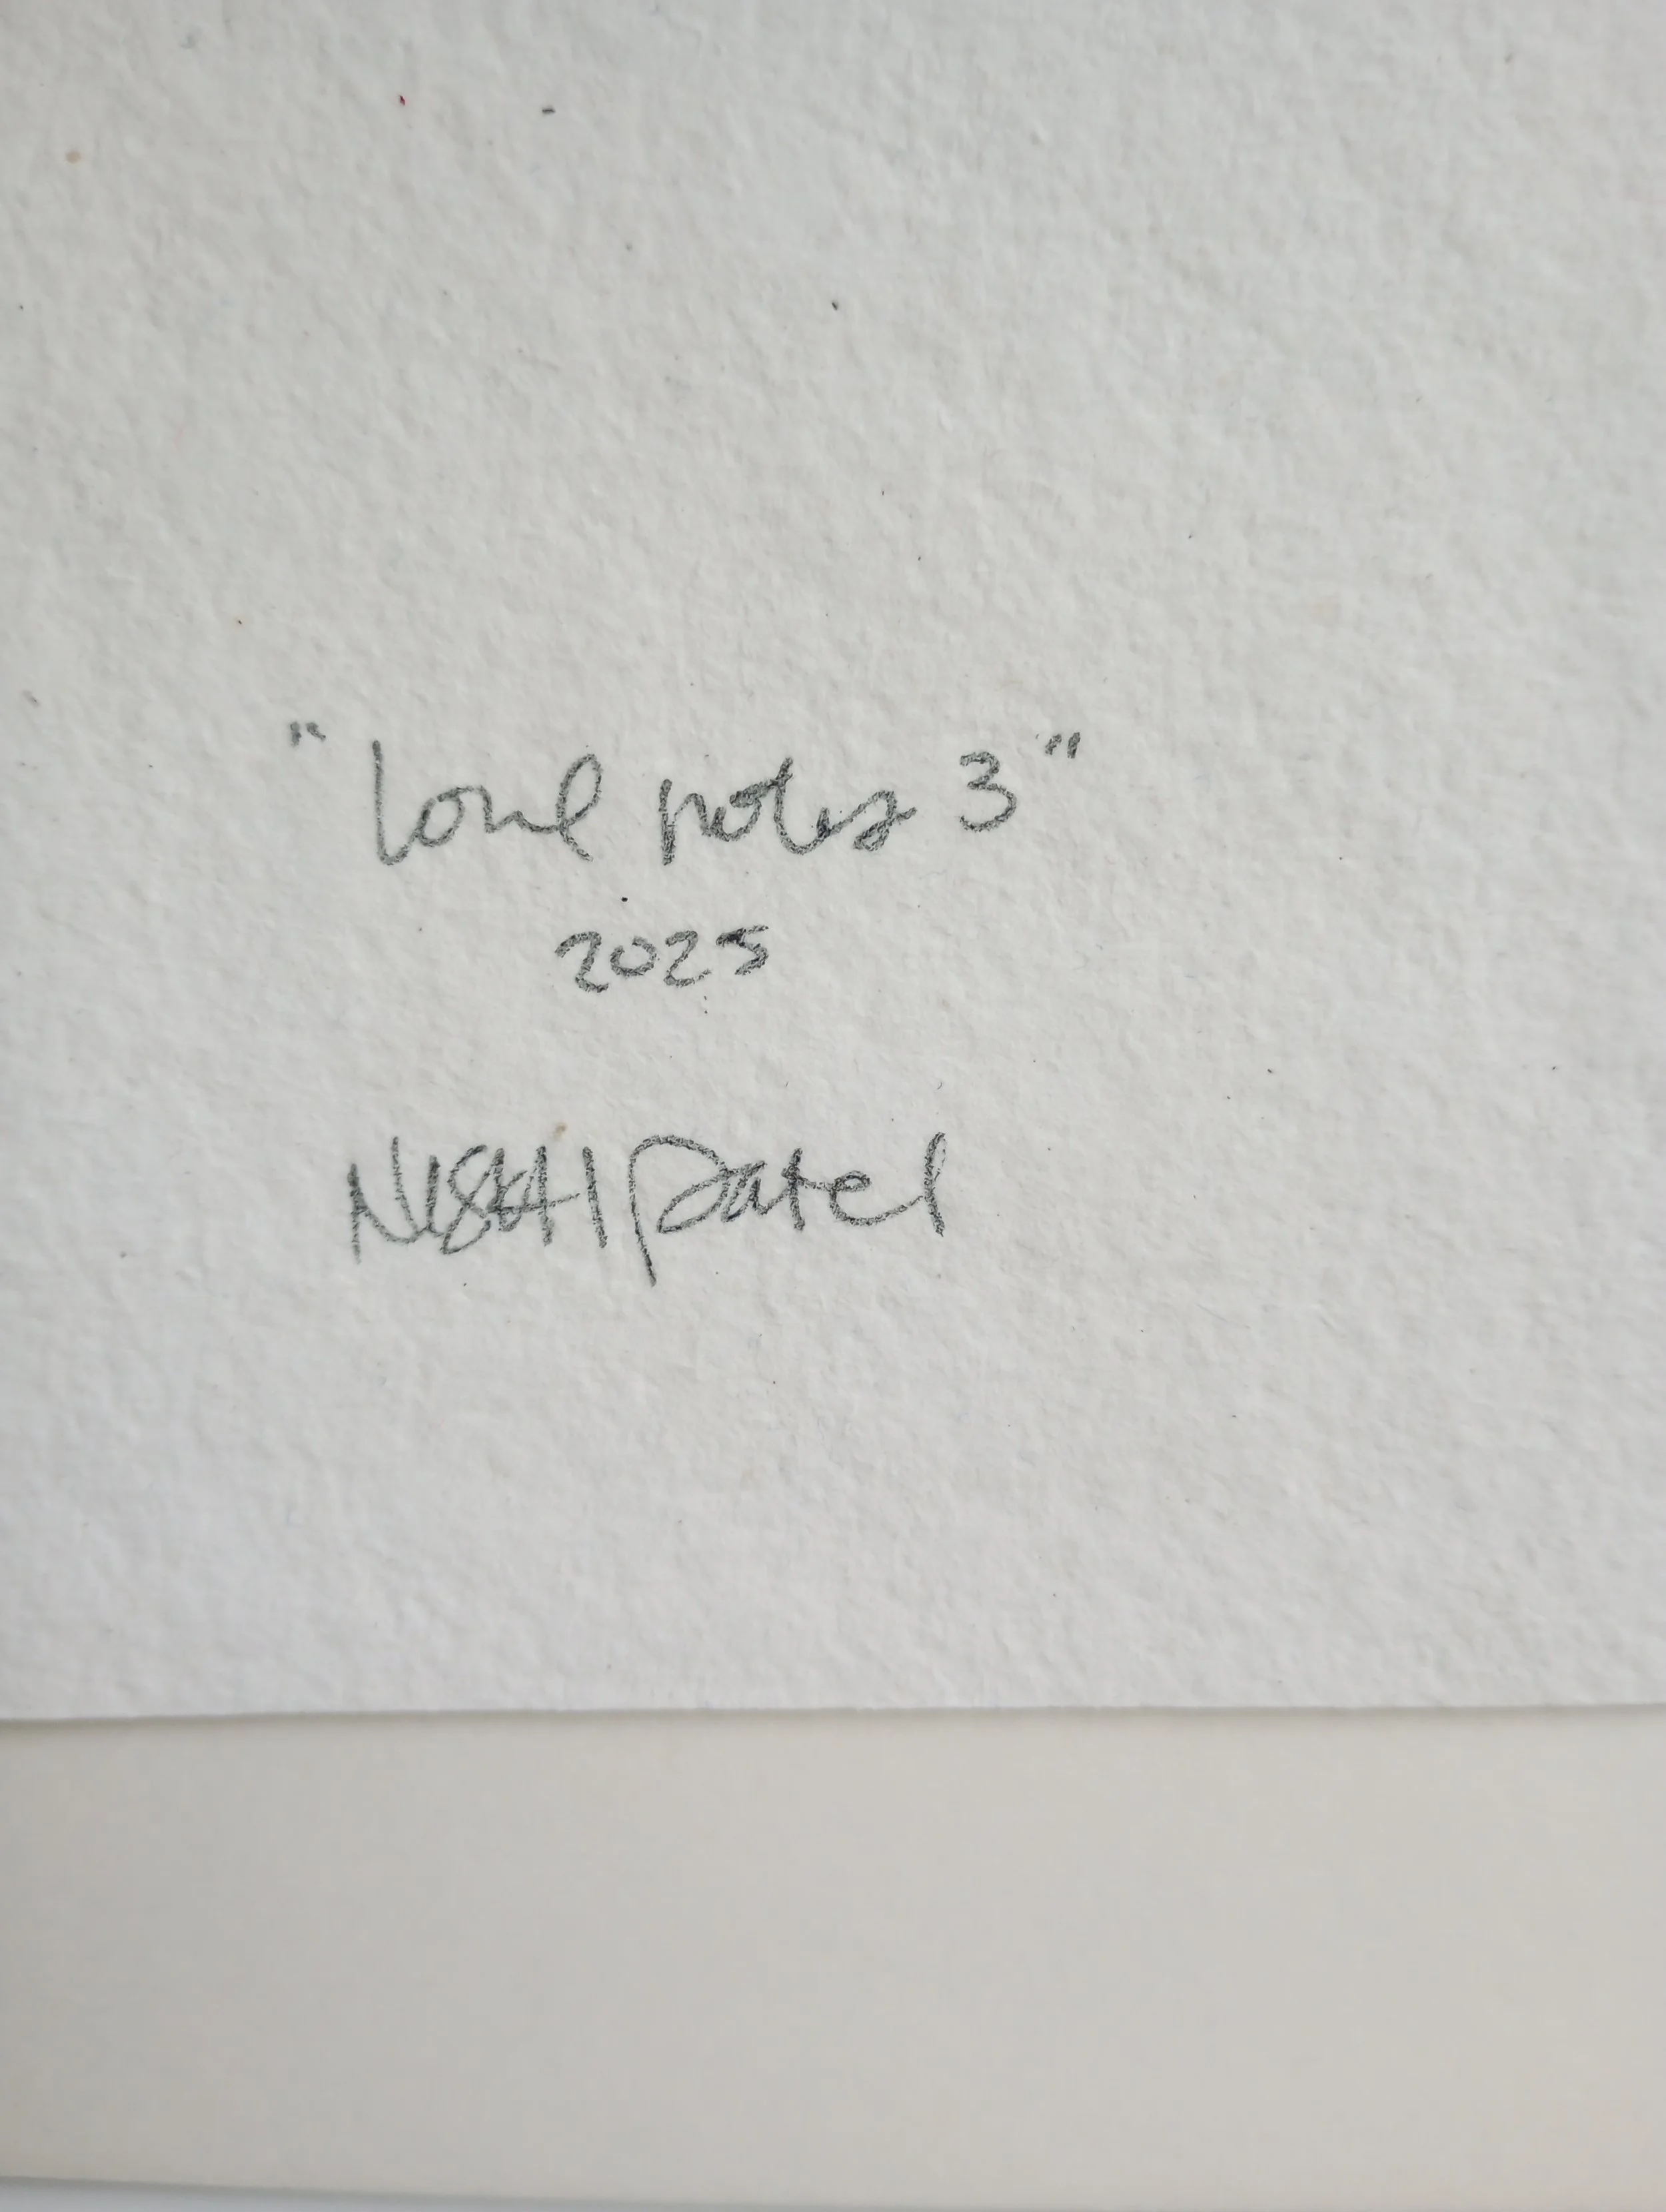 "Love notes 3"
2025
NISHHI patel